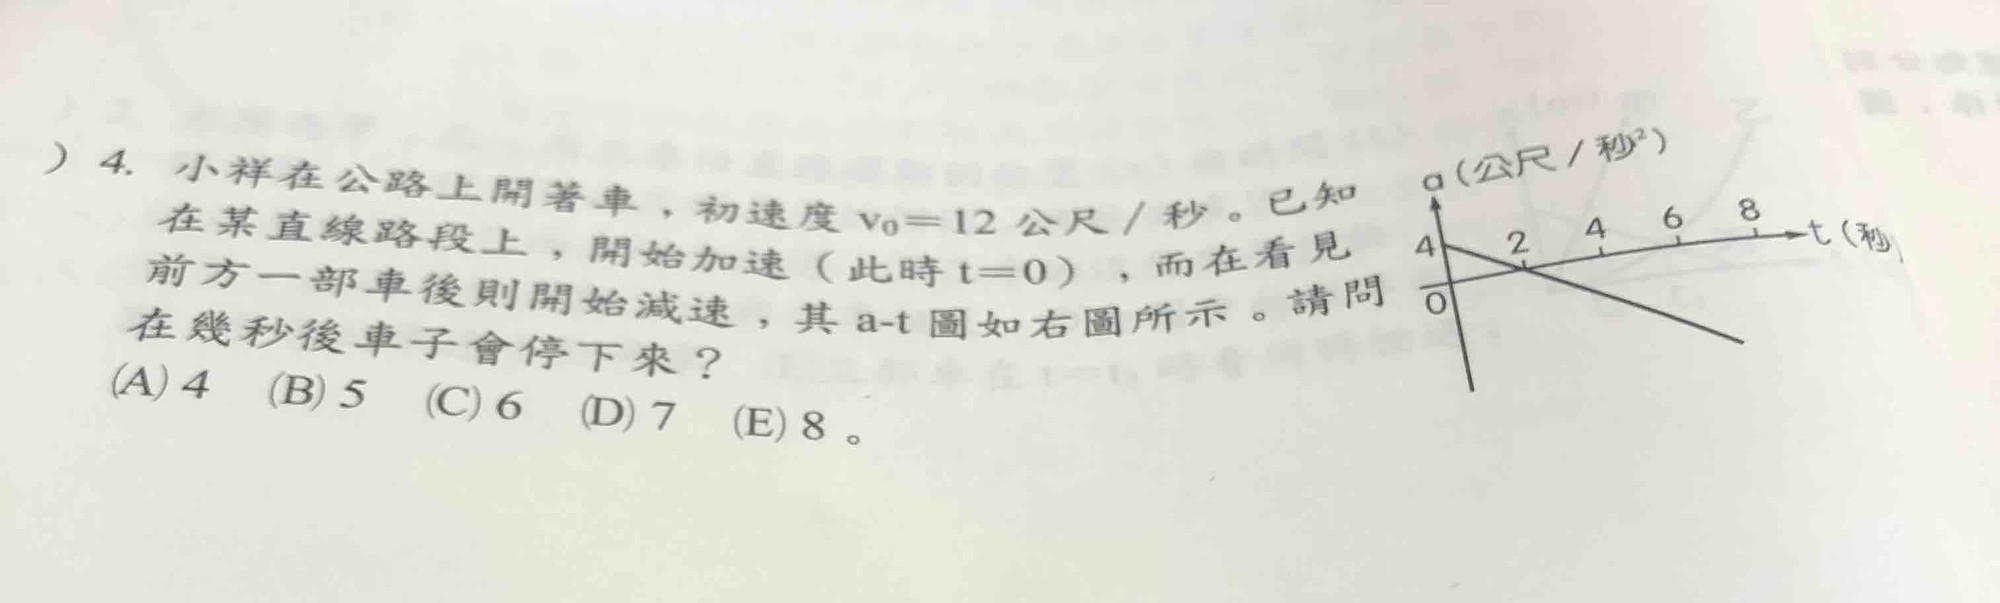 )4. 小祥在公路上開著車，初速度 v₀＝12 公尺／秒。已知
在某直線路段上，開始加速（此時 t＝0），而在看見
前方一部車後則開始減速，其 a-t 圖如右圖所示。請問
在幾秒後車子會停下來？
(A) 4 (B) 5 (C) 6 (D) 7 (E) 8 。
a (公尺／秒²)
4
2 4 6 8
t (秒)
0